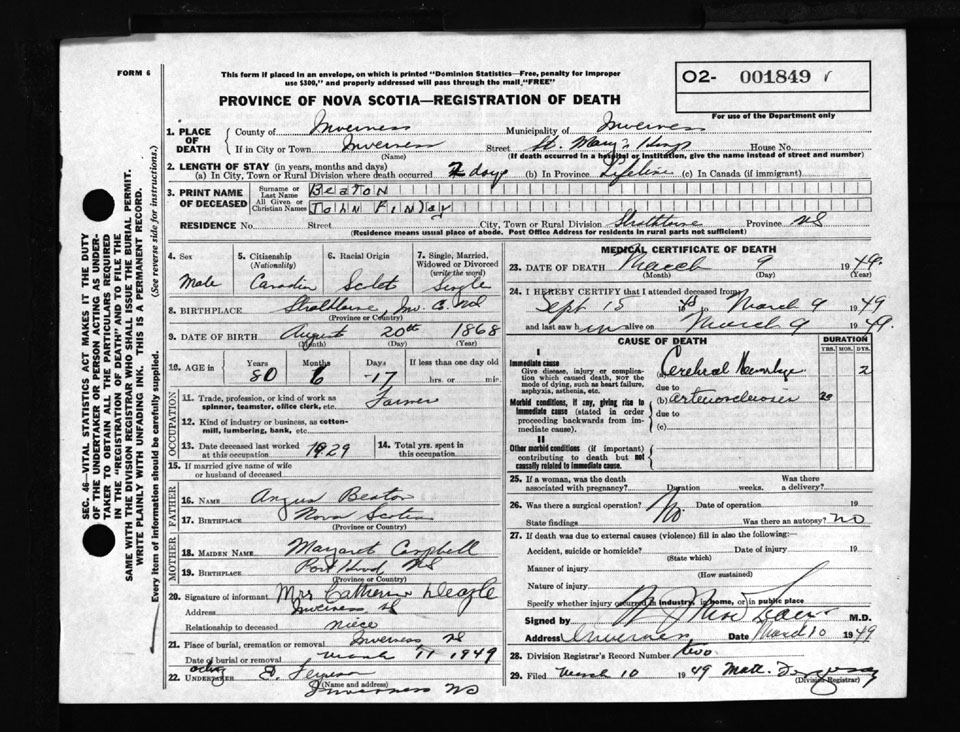 FORM 6
This form if placed in an envelope, on which is printed "Dominion Statistics—Free, penalty for improper
use $300," and properly addressed will pass through the mail "FREE"
O2- 001849
PROVINCE OF NOVA SCOTIA—REGISTRATION OF DEATH
For use of the Department only
1. PLACE OF DEATH County of Inverness Municipality of Inverness
If in City or Town Inverness Street St. Mary's Hosp House No.
(Name) (If death occurred in a hospital or institution, give the name instead of street and number)
2. LENGTH OF STAY (in years, months and days)
(a) In City, Town or Rural Division where death occurred 2 days (b) In Province Lifetime (c) In Canada (if immigrant)
3. PRINT NAME OF DECEASED Surname or Last Name BEATON
All Given or Christian Names JOHN FINLAY
RESIDENCE No. Street City, Town or Rural Division Province NS
(Residence means usual place of abode. Post Office Address for residents in rural parts not sufficient)
4. Sex 5. Citizenship (Nationality) 6. Racial Origin 7. Single, Married, Widowed or Divorced (write the word)
Male Canadin Single
8. BIRTHPLACE
(Province or Country)
9. DATE OF BIRTH August 20th 1868
(Month) (Day) (Year)
10. AGE in Years Months Days If less than one day old
80 6 17 hrs. or min.
OCCUPATION
11. Trade, profession, or kind of work as Farmer
spinner, teamster, office clerk, etc.
12. Kind of industry or business, as cotton-
mill, lumbering, bank, etc.
13. Date deceased last worked at this occupation 1929 14. Total yrs. spent in this occupation
15. If married give name of wife
or husband of deceased
FATHER
16. NAME Angus Beaton
17. BIRTHPLACE Nova Scotia
(Province or Country)
MOTHER
18. MAIDEN NAME Margaret Campbell
19. BIRTHPLACE Port Hood NS
(Province or Country)
20. Signature of informant Mrs Catherine
Address Inverness NS
Relationship to deceased niece
21. Place of burial, cremation or removal Inverness NS
Date of burial or removal March 11 1949
22. acting UNDERTAKER E. Ferguson
(Name and address)
Inverness NS
MEDICAL CERTIFICATE OF DEATH
23. DATE OF DEATH March 9 1949
(Month) (Day) (Year)
24. I HEREBY CERTIFY that I attended deceased from
Sept 15 to March 9 1949
and last saw him alive on March 9 1949.
CAUSE OF DEATH DURATION
YRS. MOS. DYS.
I
Immediate cause
Give disease, injury or complica-
tion which caused death, NOT the
mode of dying, such as heart failure,
asphyxia, asthenia, etc.
(a) Cerebral Hemorrhage 2
due to
Morbid conditions, if any, giving rise to
immediate cause (stated in order
proceeding backwards from im-
mediate cause).
(b) arteriosclerosis
due to
(c)
II
Other morbid conditions (if important)
contributing to death but not
causally related to immediate cause.
25. If a woman, was the death
associated with pregnancy? Duration weeks. Was there a delivery?
26. Was there a surgical operation? No. Date of operation 19
State findings Was there an autopsy? no
27. If death was due to external causes (violence) fill in also the following:
Accident, suicide or homicide? Date of injury 19
(State which)
Manner of injury
(How sustained)
Nature of injury
Specify whether injury occurred in industry, in home, or in public place
Signed by M.D.
Address Inverness Date March 10 1949
28. Division Registrar's Record Number two
29. Filed March 10 1949
(Division Registrar)
SEC. 46—VITAL STATISTICS ACT MAKES IT THE DUTY
OF THE UNDERTAKER OR PERSON ACTING AS UNDER-
TAKER TO OBTAIN ALL THE PARTICULARS REQUIRED
IN THE "REGISTRATION OF DEATH" AND TO FILE THE
SAME WITH THE DIVISION REGISTRAR WHO SHALL ISSUE THE BURIAL PERMIT.
WRITE PLAINLY WITH UNFADING INK. THIS IS A PERMANENT RECORD.
Every item of information should be carefully supplied. (See reverse side for instructions.)